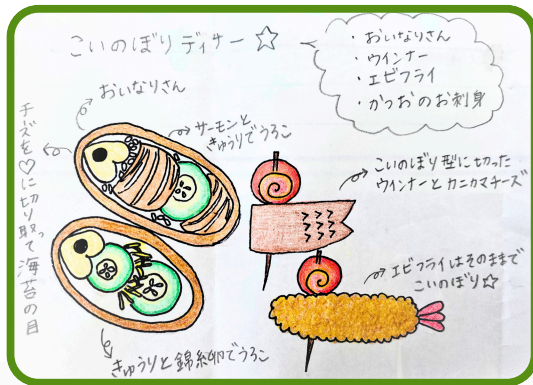 こいのぼりディナー☆
・おいなりさん
・ウインナー
・エビフライ
・かつおのお刺身
おいなりさん
チーズを♡に切り取って海苔の目
サーモンと
きゅうりでうろこ
こいのぼり型に切った
ウインナーとカニカマチーズ
エビフライはそのままで
こいのぼり☆
きゅうりと錦糸卵でうろこ